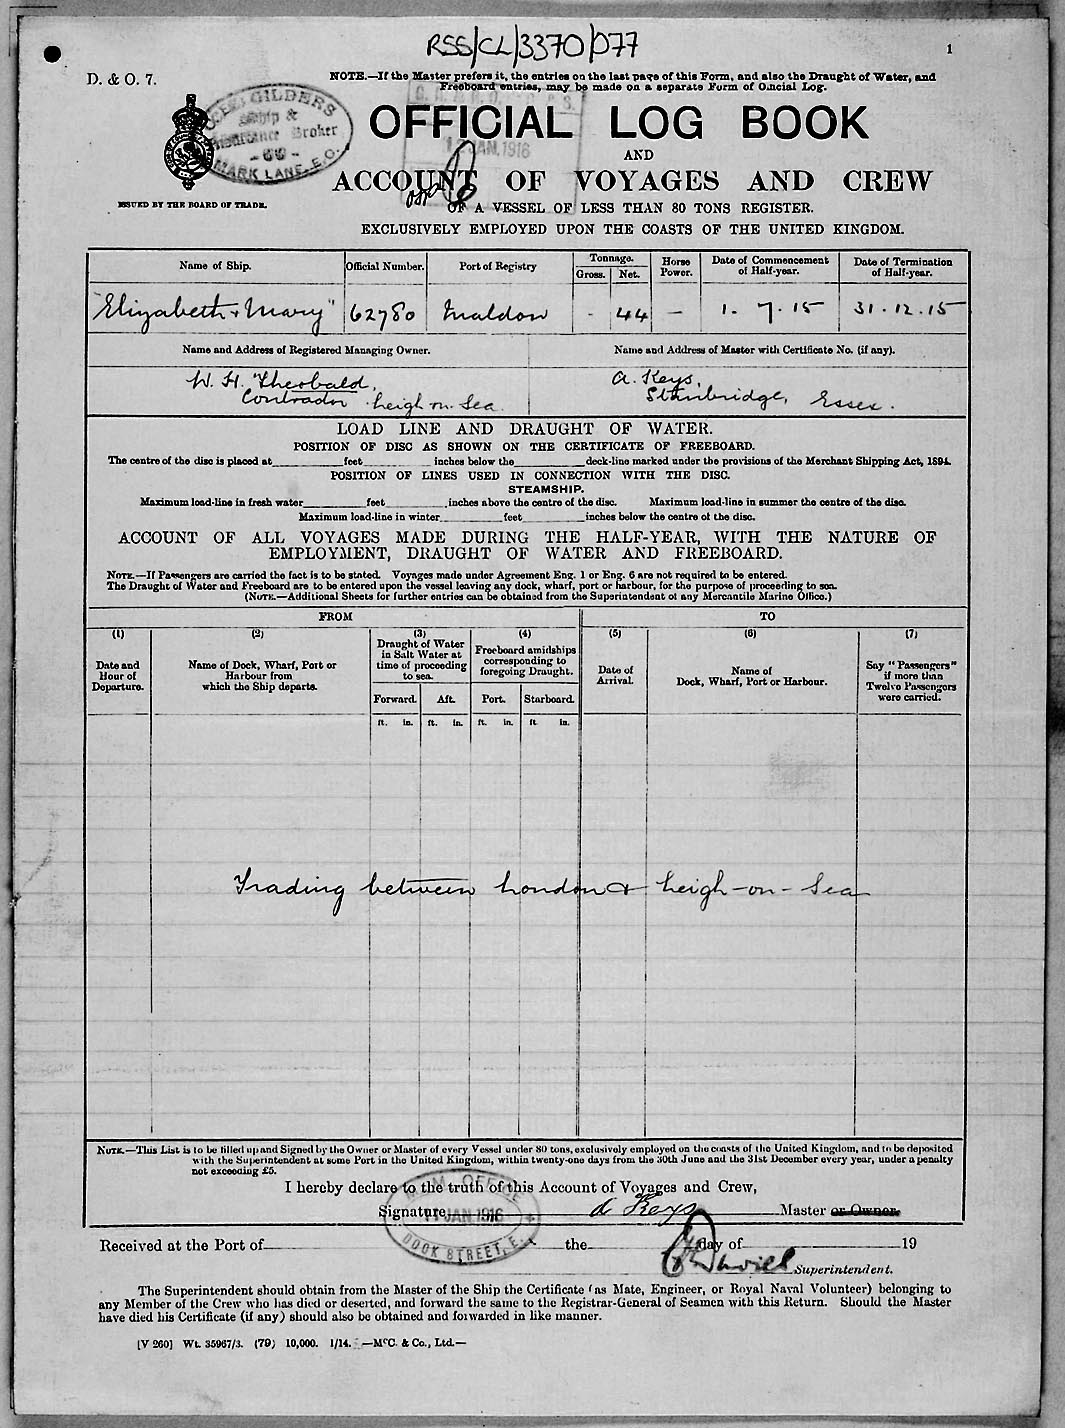 RSS/CL/3370/077
1
D. & O. 7.
NOTE.—If the Master prefers it, the entries on the last page of this Form, and also the Draught of Water, and
Freeboard entries, may be made on a separate Form of Official Log.
GILDERS
Ship &
Insurance Broker
- 66 -
MARK LANE, E.C.
JAN. 1916
OFFICIAL LOG BOOK
AND
ACCOUNT OF VOYAGES AND CREW
ISSUED BY THE BOARD OF TRADE.
OF A VESSEL OF LESS THAN 80 TONS REGISTER.
EXCLUSIVELY EMPLOYED UPON THE COASTS OF THE UNITED KINGDOM.
Name of Ship. Official Number. Port of Registry Tonnage. Gross. Net. Horse Power. Date of Commencement of Half-year. Date of Termination of Half-year.
"Elizabeth & Mary" 62780 Maldon - 44 — 1. 7. 15 31. 12. 15
Name and Address of Registered Managing Owner. Name and Address of Master with Certificate No. (if any).
W. H. Theobald, A. Keys,
Contractor Leigh on Sea. Stambridge, Essex.
LOAD LINE AND DRAUGHT OF WATER.
POSITION OF DISC AS SHOWN ON THE CERTIFICATE OF FREEBOARD.
The centre of the disc is placed at feet inches below the deck-line marked under the provisions of the Merchant Shipping Act, 1894.
POSITION OF LINES USED IN CONNECTION WITH THE DISC.
STEAMSHIP.
Maximum load-line in fresh water feet inches above the centre of the disc. Maximum load-line in summer the centre of the disc.
Maximum load-line in winter feet inches below the centre of the disc.
ACCOUNT OF ALL VOYAGES MADE DURING THE HALF-YEAR, WITH THE NATURE OF
EMPLOYMENT, DRAUGHT OF WATER AND FREEBOARD.
NOTE.—If Passengers are carried the fact is to be stated. Voyages made under Agreement Eng. 1 or Eng. 6 are not required to be entered.
The Draught of Water and Freeboard are to be entered upon the vessel leaving any dock, wharf, port or harbour, for the purpose of proceeding to sea.
(NOTE.—Additional Sheets for further entries can be obtained from the Superintendent of any Mercantile Marine Office.)
FROM TO
(1) (2) (3) (4) (5) (6) (7)
Date and Hour of Departure.
Name of Dock, Wharf, Port or Harbour from which the Ship departs.
Draught of Water in Salt Water at time of proceeding to sea.
Freeboard amidships corresponding to foregoing Draught.
Date of Arrival.
Name of Dock, Wharf, Port or Harbour.
Say "Passengers" if more than Twelve Passengers were carried.
Forward. Aft. Port. Starboard.
ft. in. ft. in. ft. in. ft. in.
Trading between London & Leigh-on-Sea
NOTE.—This List is to be filled up and Signed by the Owner or Master of every Vessel under 80 tons, exclusively employed on the coasts of the United Kingdom, and to be deposited
with the Superintendent at some Port in the United Kingdom, within twenty-one days from the 30th June and the 31st December every year, under a penalty
not exceeding £5.
I hereby declare to the truth of this Account of Voyages and Crew,
Signature A Keys Master or Owner.
M.M. OFFICE
11 JAN. 1916
DOCK STREET, E.
Received at the Port of the day of 19
Superintendent.
The Superintendent should obtain from the Master of the Ship the Certificate (as Mate, Engineer, or Royal Naval Volunteer) belonging to
any Member of the Crew who has died or deserted, and forward the same to the Registrar-General of Seamen with this Return. Should the Master
have died his Certificate (if any) should also be obtained and forwarded in like manner.
[V 260] Wt. 35967/3. (79) 10,000. 1/14. —McC. & Co., Ltd.—